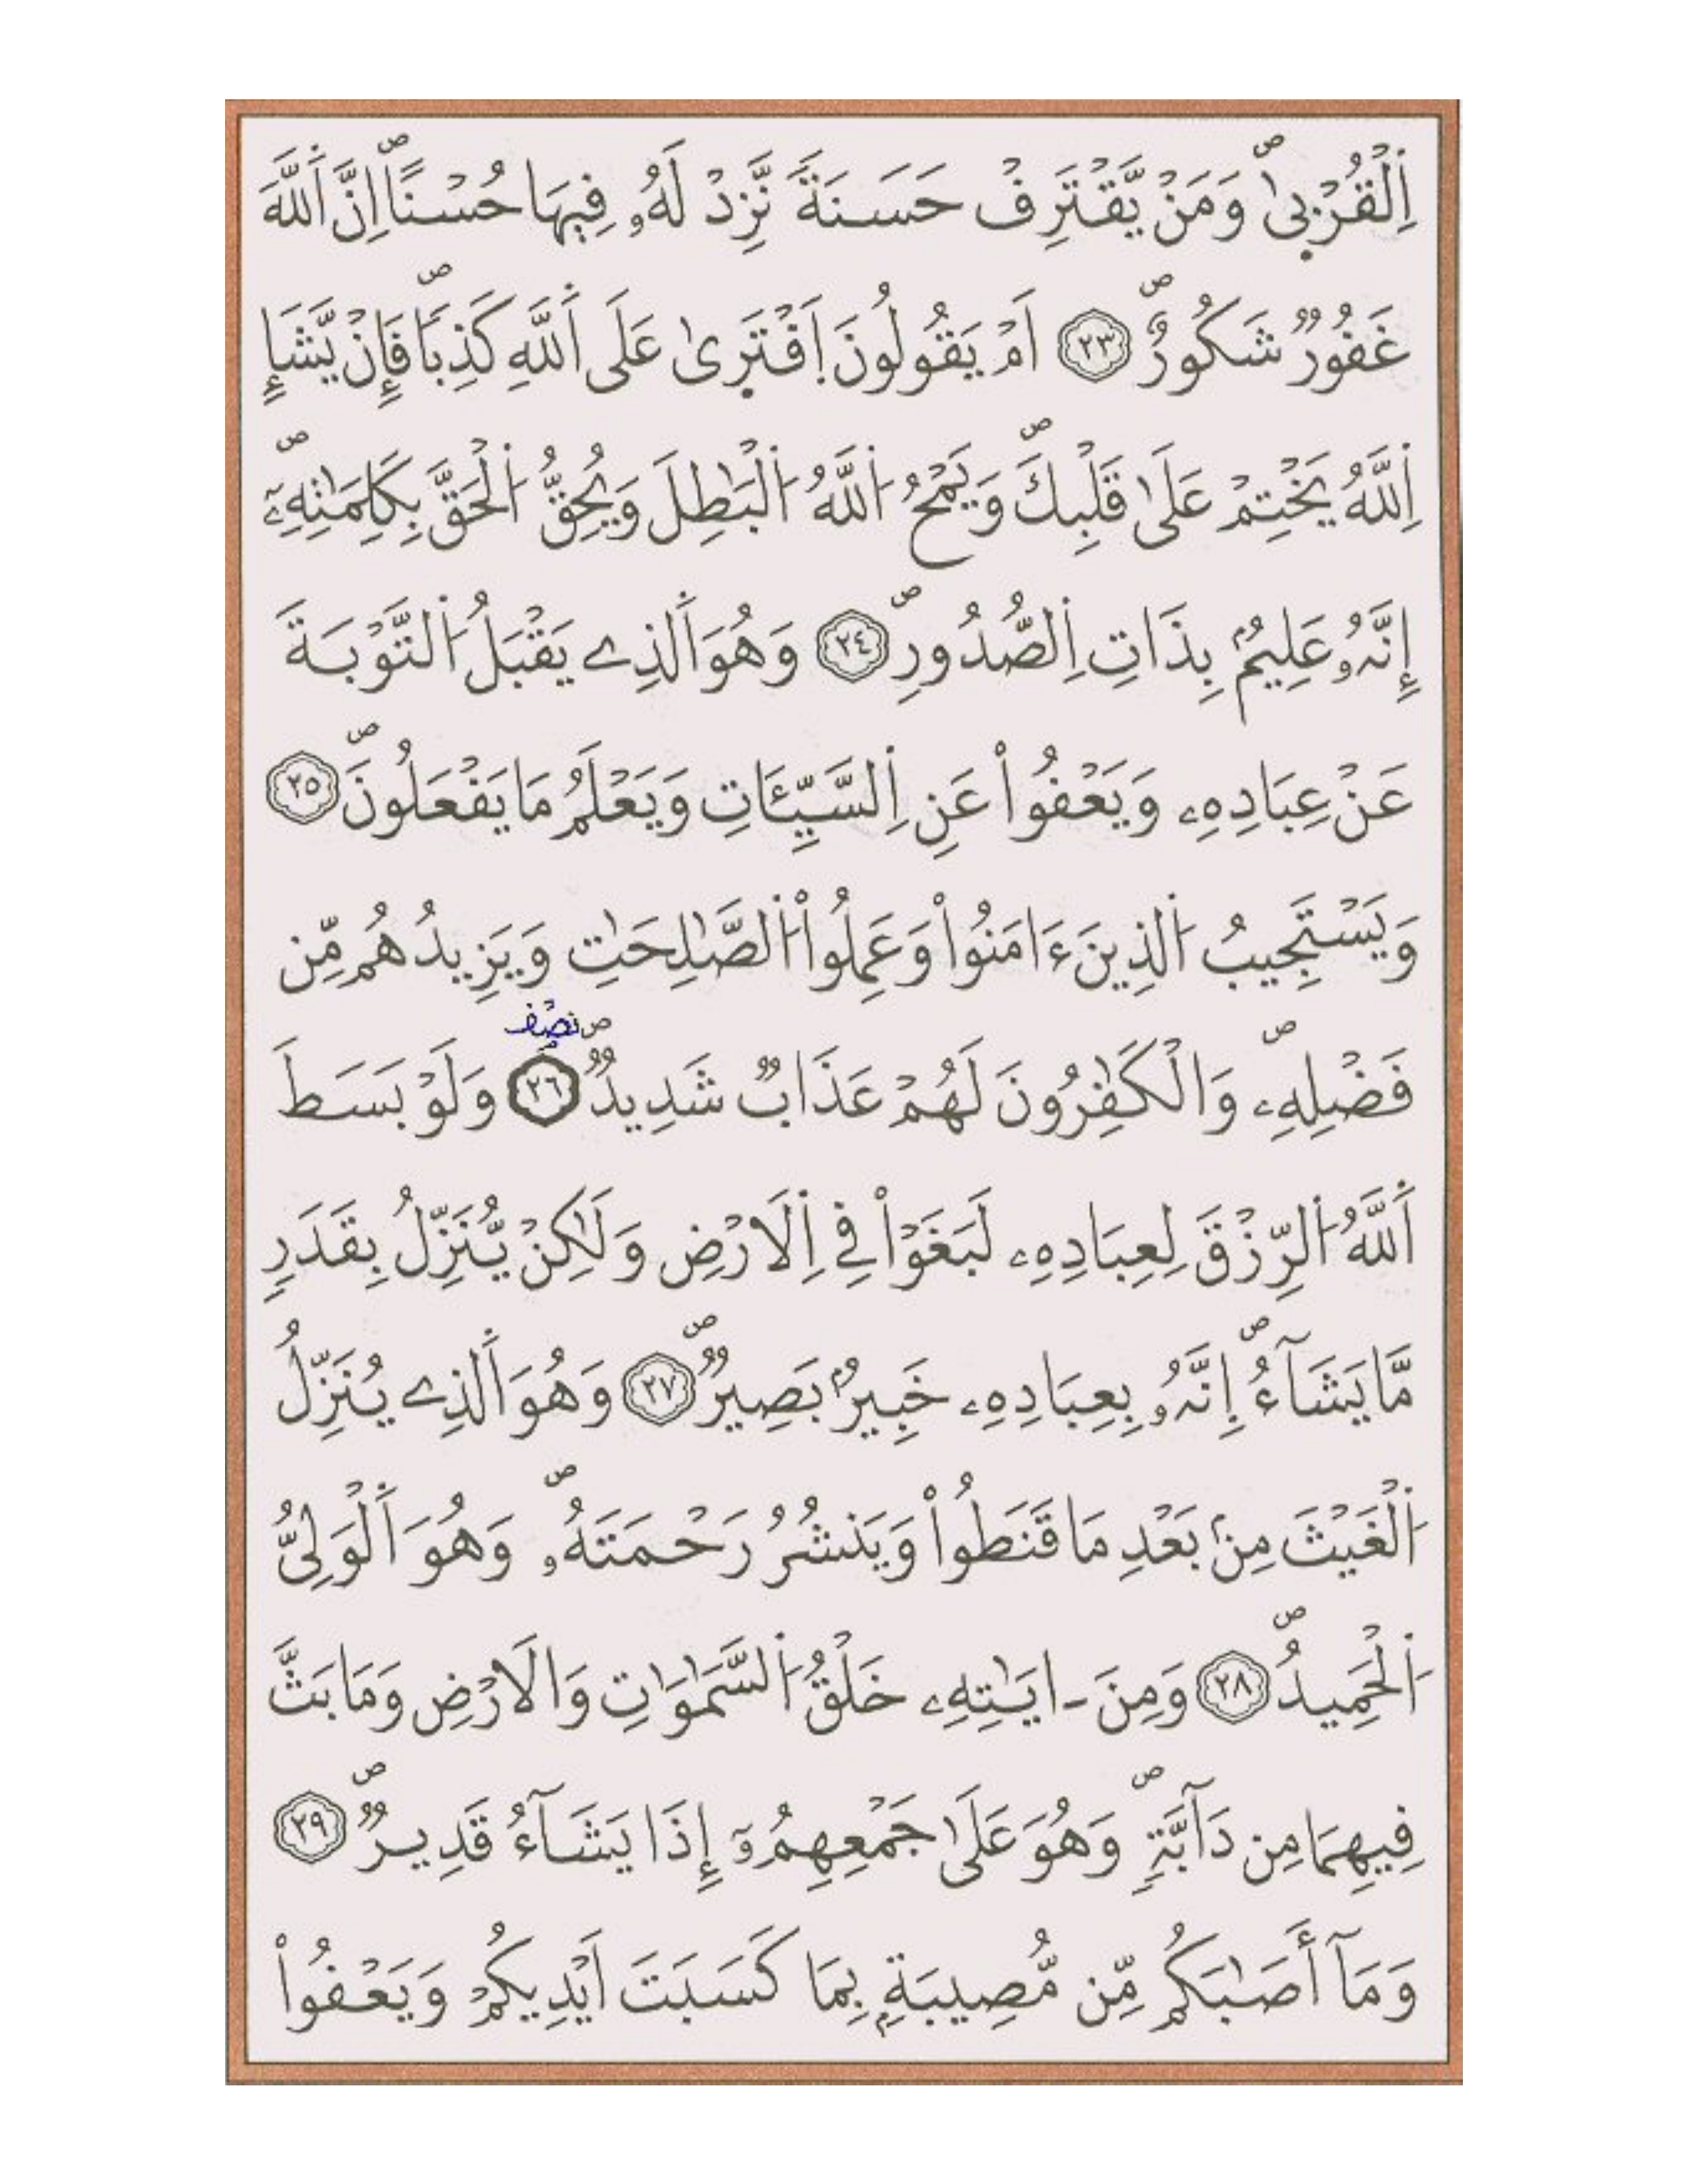 اِ۬لْقُرْب۪يٰۖ وَمَنْ يَّقْتَرِفْ حَسَنَةٗ نَّزِدْ لَهُۥ فِيهَا حُسْناًۖ اِنَّ اَ۬للَّهَ
غَفُورٞ شَكُورٌۖ ٢٣ اَمْ يَقُولُونَ اَ۪فْتَر۪يٰ عَلَى اَ۬للَّهِ كَذِباٗۖ فَإِنْ يَّشَإِ
اِ۬للَّهُ يَخْتِمْ عَلَىٰ قَلْبِكَۖ وَيَمْحُ اُ۬للَّهُ اُ۬لْبَٰطِلَ وَيُحِقُّ اُ۬لْحَقَّ بِكَلِمَٰتِهِۦٓۖ
إِنَّهُۥ عَلِيمُۢ بِذَاتِ اِ۬لصُّدُورِۖ ٢٤ وَهُوَ اَ۬لذِے يَقْبَلُ اُ۬لتَّوْبَةَ
عَنْ عِبَادِهِۦ وَيَعْفُواْ عَنِ اِ۬لسَّيِّـَٔاتِ وَيَعْلَمُ مَا يَفْعَلُونَۖ ٢٥
وَيَسْتَجِيبُ اُ۬لذِينَ ءَامَنُواْ وَعَمِلُواْ اُ۬لصَّٰلِحَٰتِ وَيَزِيدُهُم مِّن
نصف
فَضْلِهِۦۖ وَالْكَٰفِرُونَ لَهُمْ عَذَابٞ شَدِيدٞۖ ٢٦ وَلَوْ بَسَطَ
اَ۬للَّهُ اُ۬لرِّزْقَ لِعِبَادِهِۦ لَبَغَوْاْ فِے اِ۬لَارْضِ وَلَٰكِنْ يُّنَزِّلُ بِقَدَرٖ
مَّا يَشَآءُۖ اِنَّهُۥ بِعِبَادِهِۦ خَبِيرُۢ بَصِيرٞۖ ٢٧ وَهُوَ اَ۬لذِے يُنَزِّلُ
اُ۬لْغَيْثَ مِنۢ بَعْدِ مَا قَنَطُواْ وَيَنشُرُ رَحْمَتَهُۥۖ وَهُوَ اَ۬لْوَلِيُّ
اُ۬لْحَمِيدُۖ ٢٨ وَمِنَ ـ ايَٰتِهِۦ خَلْقُ اُ۬لسَّمَٰوَٰتِ وَالَارْضِ وَمَا بَثَّ
فِيهِمَا مِن دَآبَّةٖۖ وَهُوَ عَلَىٰ جَمْعِهِمُۥٓ إِذَا يَشَآءُ قَدِيرٞۖ ٢٩
وَمَآ أَصَٰبَكُم مِّن مُّصِيبَةِۢ بِمَا كَسَبَتَ اَيْدِيكُمْ وَيَعْفُواْ